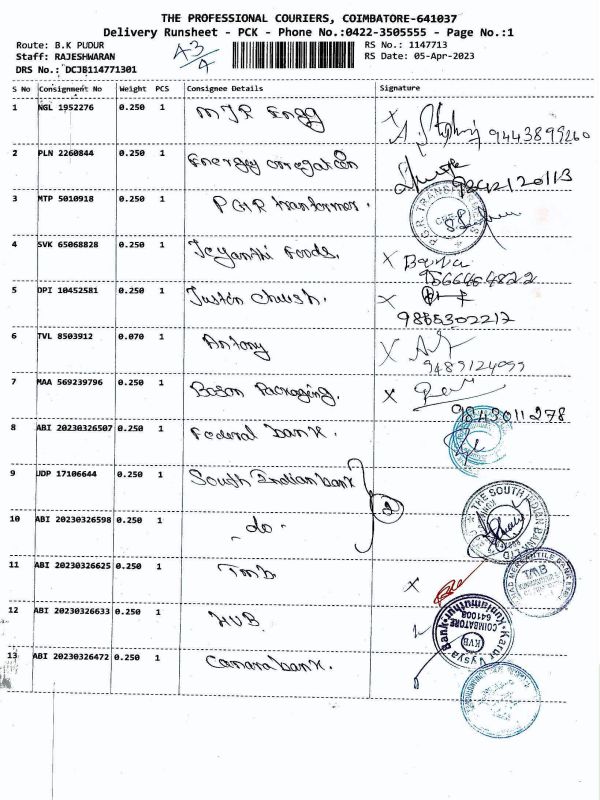 THE PROFESSIONAL COURIERS, COIMBATORE-641037
Delivery Runsheet - PCK - Phone No.:0422-3505555 - Page No.:1
Route: B.K PUDUR
Staff: RAJESHWARAN
DRS No.: DCJB114771301
RS No.: 1147713
RS Date: 05-Apr-2023
S No Consignment No Weight PCS Consignee Details Signature
1 NGL 1952276 0.250 1 MJR Engg 9443899260
2 PLN 2260844 0.250 1 Energy 9242120113
3 MTP 5010918 0.250 1 PGR tranformer.
4 SVK 65068828 0.250 1 Jeyanthi Foods. 9566464822
5 DPI 10452581 0.250 1 Juston Church. 9865302217
6 TVL 8503912 0.070 1 Antony 9489124099
7 MAA 569239796 0.250 1 Boson Packaging. 9843011278
8 ABI 20230326507 0.250 1 Federal bank.
9 UDP 17106644 0.250 1 South Indian bank 2
10 ABI 20230326598 0.250 1 -do-
11 ABI 20230326625 0.250 1 Tmb
12 ABI 20230326633 0.250 1 KVB
13 ABI 20230326472 0.250 1 Canara bank.
P.G.R. TRANSFORMERS
THE SOUTH INDIAN BANK LTD
TMB
Karur Vysya Bank
KVB
COIMBATORE
641008
Kuniamuthur